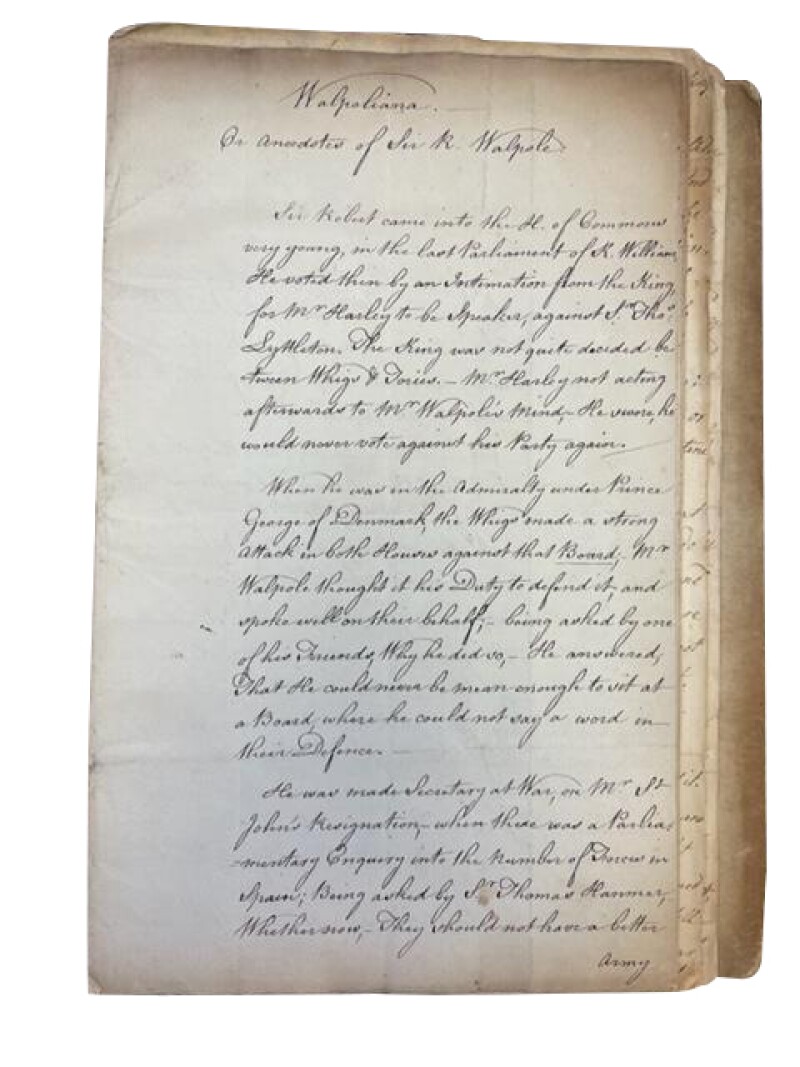 Walpoliana.
Or Anecdotes of Sir R. Walpole.
Sir Robert came into the H. of Commons
very young, in the last Parliament of K. William,
He voted then by an Intimation from the King,
for Mr Harley to be Speaker, against Sr. Thos.
Lyttleton. The King was not quite decided be
tween Whigs & Tories. – Mr. Harley not acting
afterwards to Mr Walpole's Mind, – He swore, he
would never vote against his Party again.
When he was in the Admiralty under Prince
George of Denmark, the Whigs made a strong
Attack in both Houses against that Board; – Mr
Walpole thought it his Duty to defend it, and
spoke well on their behalf; – being asked by one
of his Friends, Why he did so, – He answered,
That He could never be mean enough to sit at
a Board, where he could not say a word in
their Defence. –
He was made Secretary at War, on Mr St
John's Resignation, – when there was a Parlia
-mentary Enquiry into the Number of Forces in
Spain; Being asked by Sr. Thomas Hanmer,
Whether now, – They should not have a better
Army